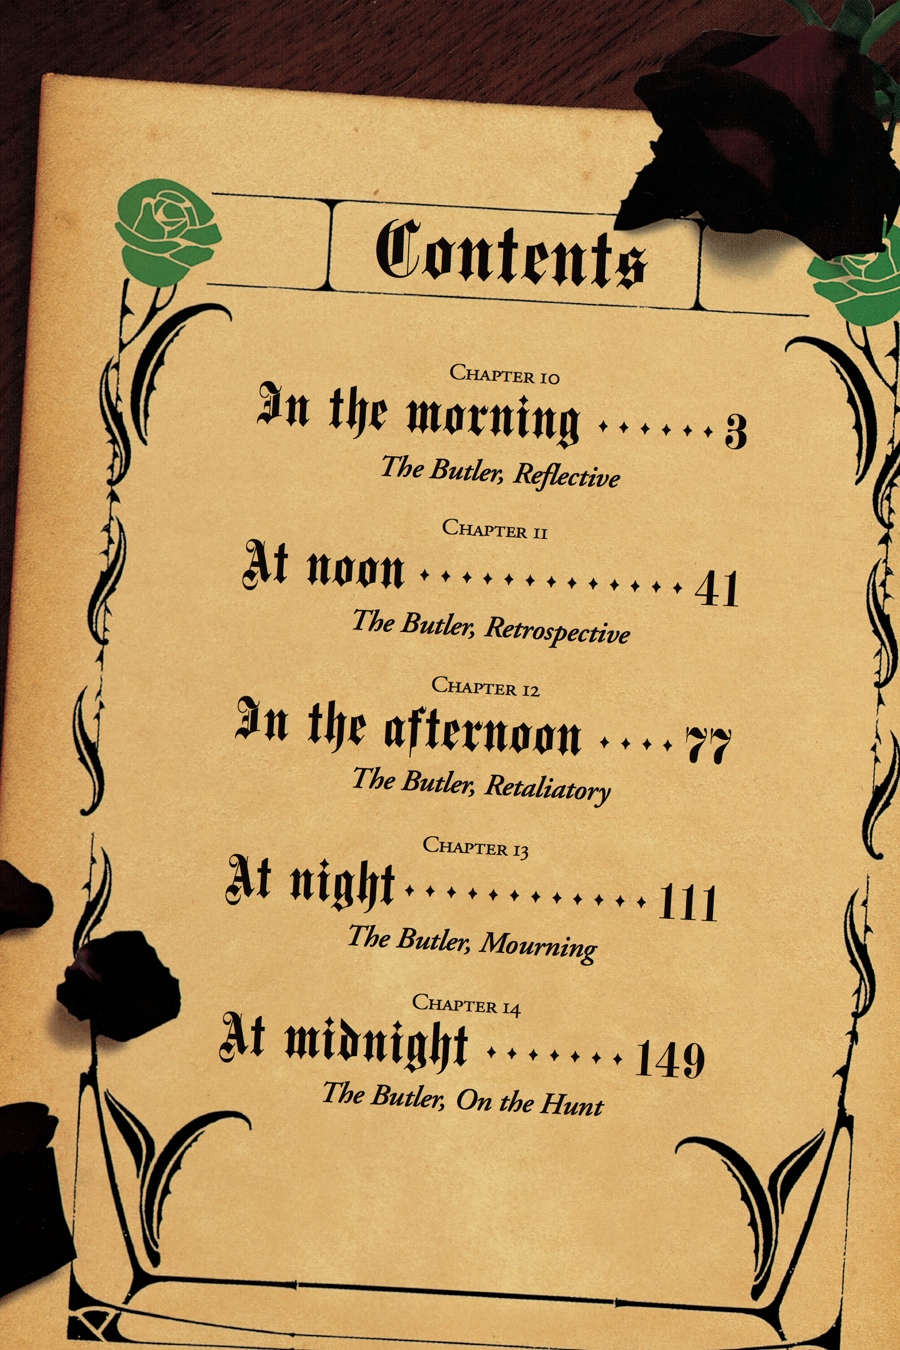 Contents
Chapter 10
In the morning ······ 3
The Butler, Reflective
Chapter 11
At noon ············· 41
The Butler, Retrospective
Chapter 12
In the afternoon ···· 77
The Butler, Retaliatory
Chapter 13
At night ············ 111
The Butler, Mourning
Chapter 14
At midnight ······· 149
The Butler, On the Hunt